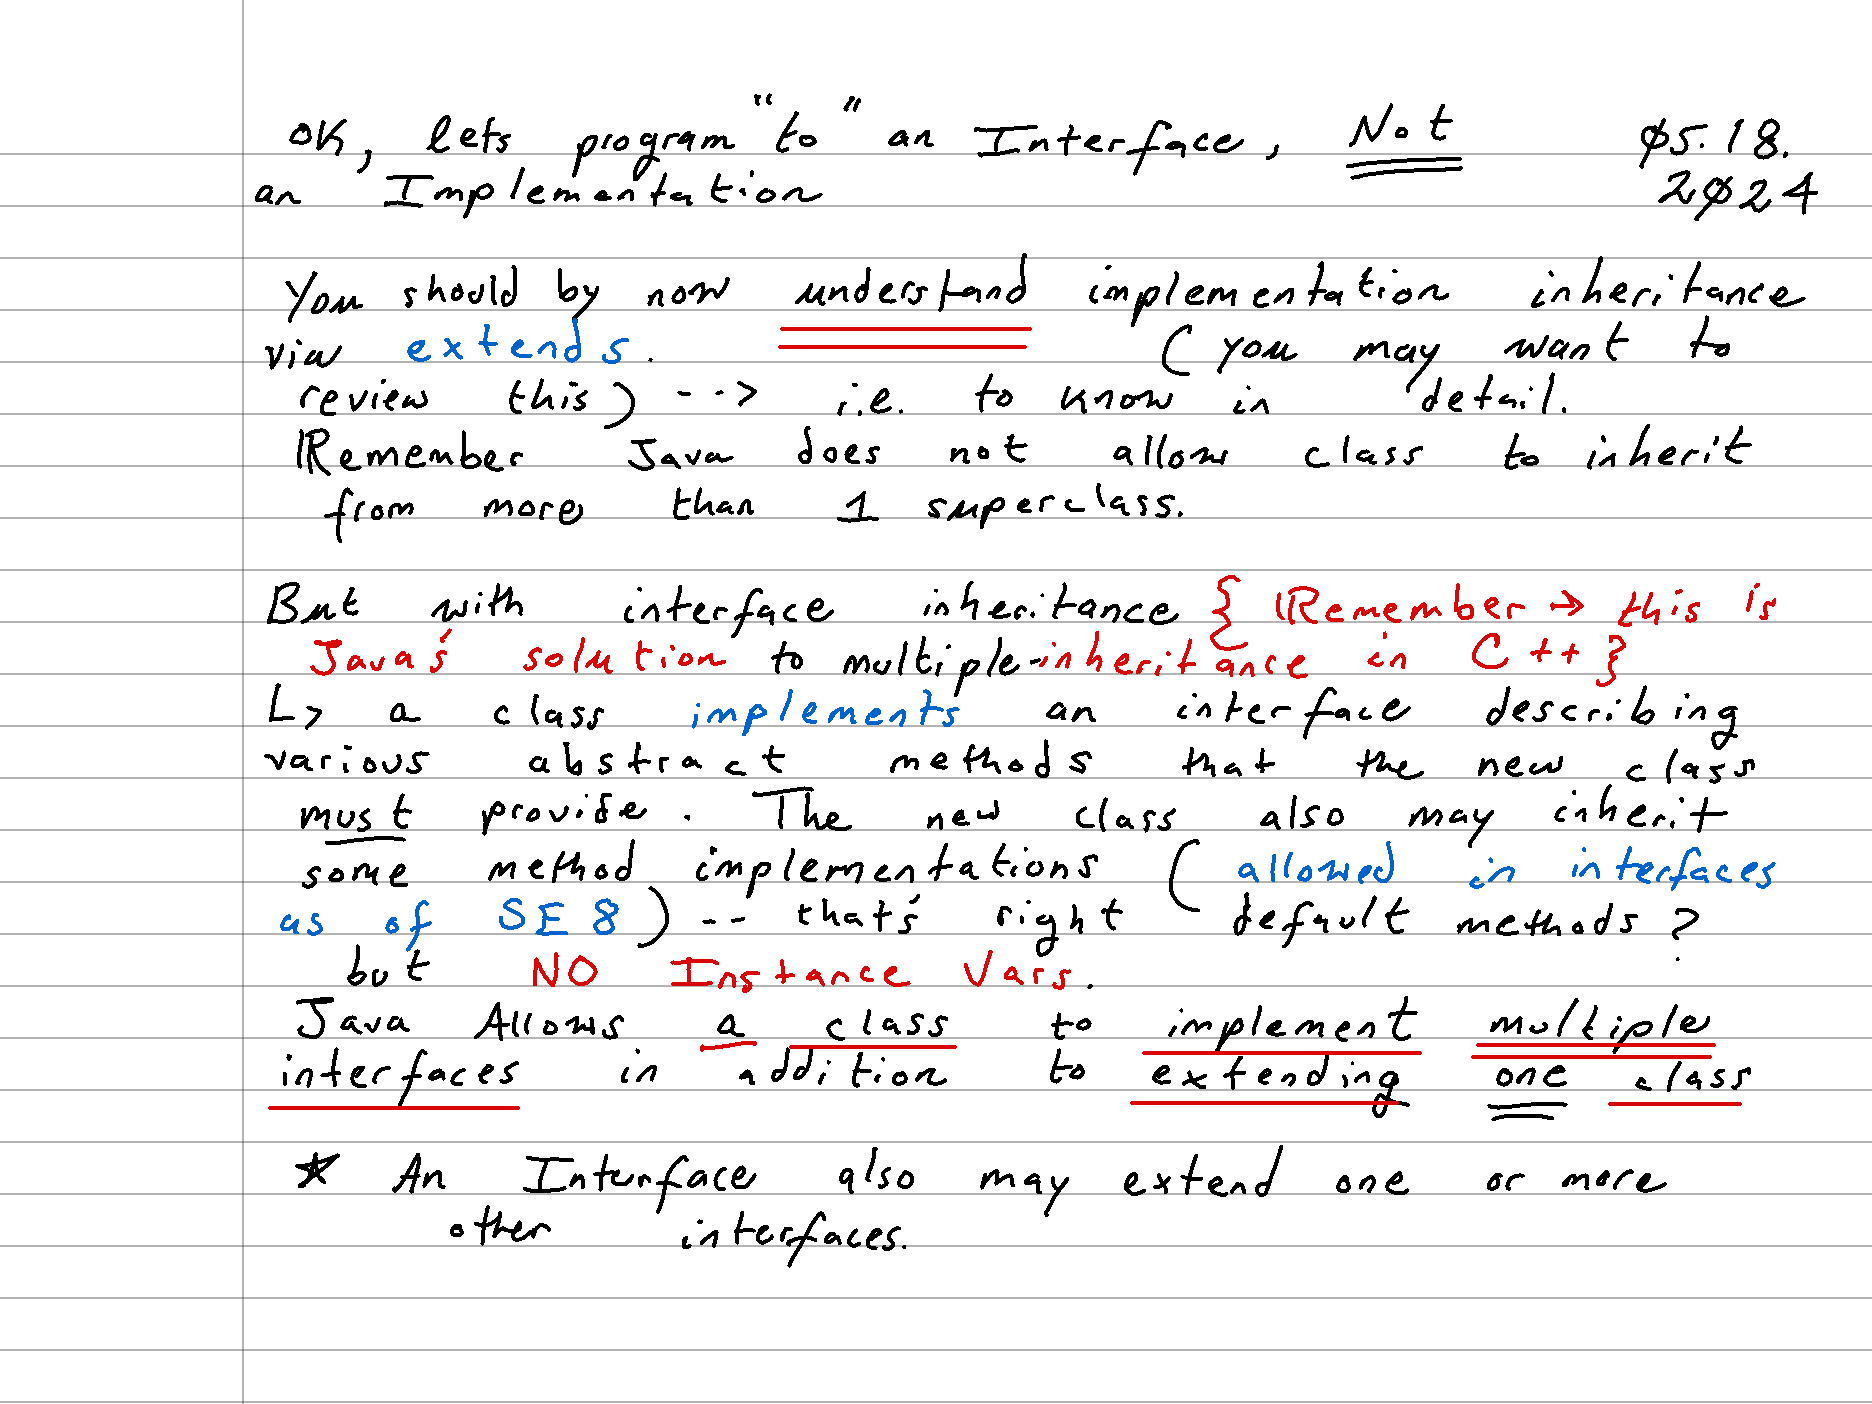 OK, lets program "to" an Interface, Not
an Implementation
Ø5.18.
2Ø24
You should by now understand implementation inheritance
via extends. (you may want to
review this) --> i.e. to know in detail.
Remember Java does not allow class to inherit
from more than 1 superclass.
But with interface inheritance { Remember → this is
Java's solution to multiple-inheritance in C++ }
L> a class implements an interface describing
various abstract methods that the new class
must provide. The new class also may inherit
some method implementations (allowed in interfaces
as of SE8) -- that's right default methods?
but NO Instance Vars.
Java Allows a class to implement multiple
interfaces in addition to extending one class
* An Interface also may extend one or more
other interfaces.